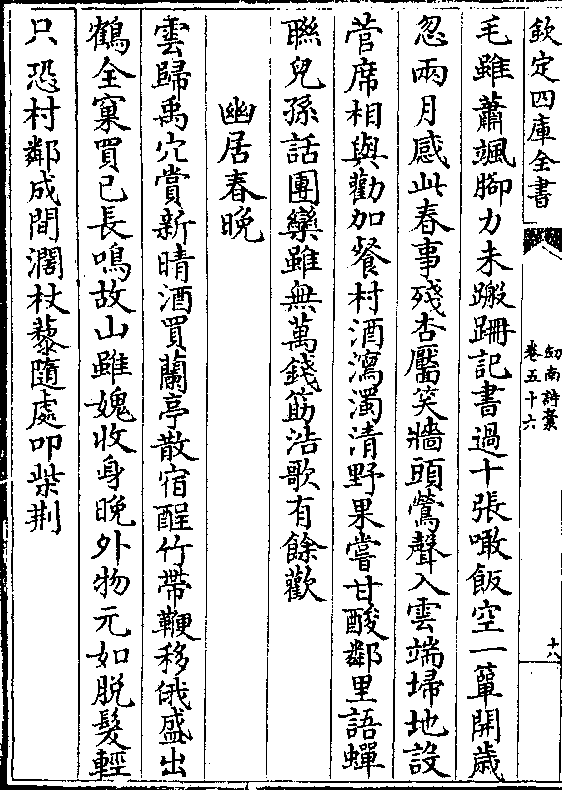 欽定四庫全書
劒南詩稾
卷五十六
十八
毛雖蕭颯腳力未蹣跚記書過十張噉飯空一簞開歲
忽兩月感此春事殘杏靨笑牆頭鶯聲入雲端埽地設
菅席相與勸加餐村酒瀉濁清野果嘗甘酸鄰里語蟬
聯兒孫話團欒雖無萬錢筯浩歌有餘歡
幽居春晚
雲歸禹穴賞新晴酒買蘭亭散宿酲竹帶鞭移俄盛出
鶴全窠買已長鳴故山雖媿收身晚外物元如脫髮輕
只恐村鄰成間濶杖藜隨處叩柴荆